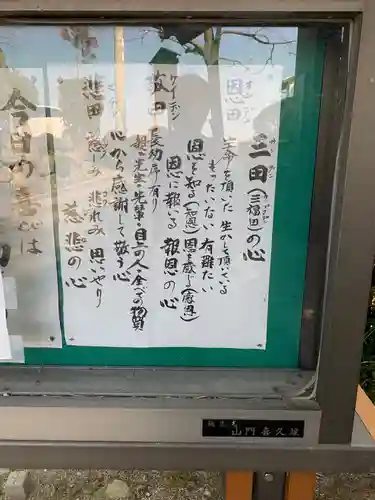 三田(三福田)の心
恩田
生命を頂いた 生かして頂いている
もったいない 有難たい
恩を知る(知恩) 恩を感じる(感恩)
恩に報いる 報恩の心
敬田
ケイデン
長幼序有り
親・先生・先輩・目上の人・全べての物質
心から感謝して敬う心
悲田
慈しみ 悲れみ 思いやり
慈悲の心
今日の喜びは
山門喜久塚